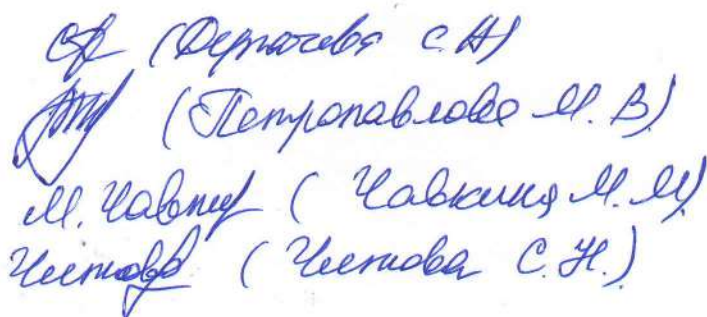 (Дергачева С.А)
(Петропавлова М.В)
М. Чавкин (Чавкина М.М)
Чистова (Чистова С.Н.)